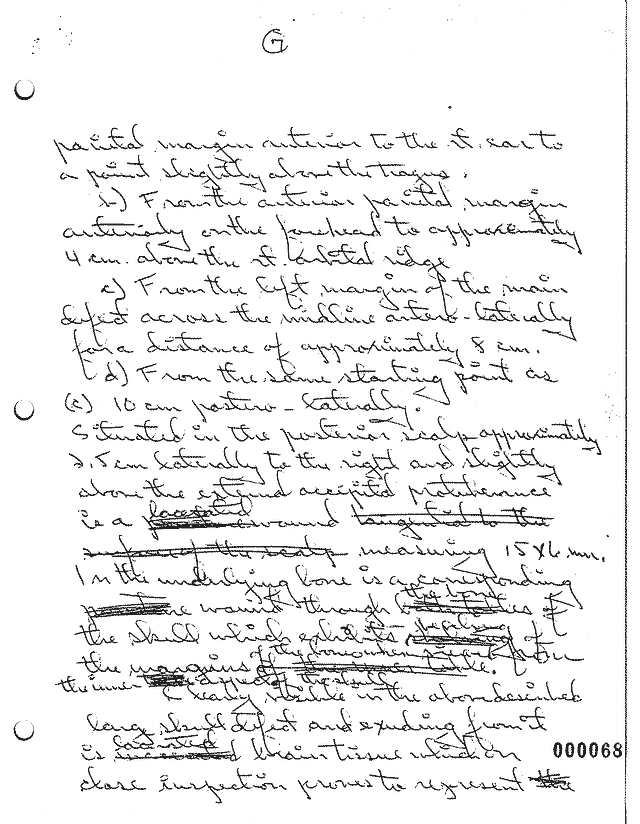 7
parietal margin anterior to the rt. ear to
a point slightly above the tragus.
b) From the anterior parietal margin
anteriorly on the forehead to approximately
4 cm. above the rt. orbital ridge
c) From the left margin of the main
defect across the midline antero-laterally
for a distance of approximately 8 cm.
d) From the same starting point as
(c) 10 cm postero-laterally.
Situated in the posterior scalp approximately
2.5 cm laterally to the right and slightly
above the external occipital protuberance
lacerated
is a wound tangential to the
surface of the scalp measuring 15 X 6 mm.
In the underlying bone is a corresponding
the bone
wound through tables of
beveling
the skull which exhibits of
the margins of the bone when viewed from
the inner aspect of the skull
Clearly visible in the above described
large skull defect and exuding from it
lacerated
is brain tissue which on
close inspection proves to represent the
000068